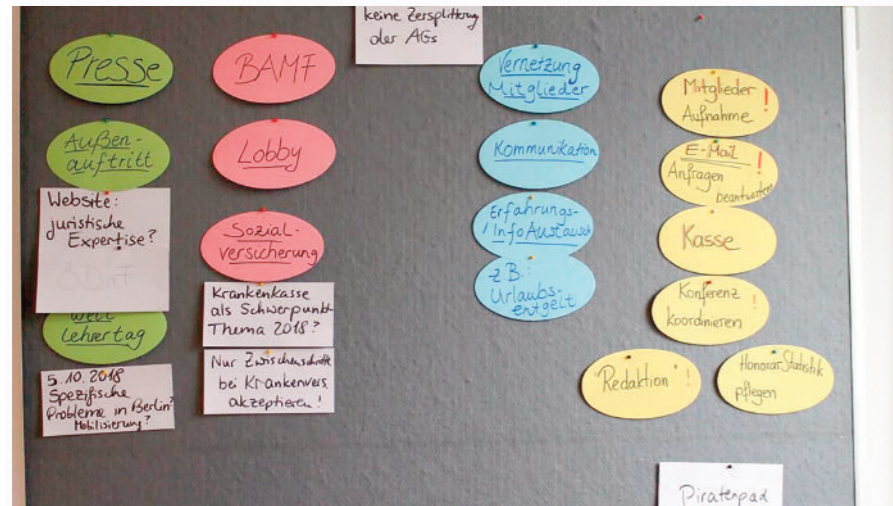 keine Zersplitterung
der AGs
Presse
Außen-
auftritt
Website:
juristische
Expertise?
Welt
Lehrertag
5.10.2018
Spezifische
Probleme in Berlin?
Mobilisierung?
BAMF
Lobby
Sozial-
versicherung
Krankenkasse
als Schwerpunkt
Thema 2018?
Nur Zwischenschritte
bei Krankenvers.
akzeptieren!
Vernetzung
Mitglieder
Kommunikation
Erfahrungs-
/InfoAustausch
z.B.:
Urlaubs-
entgelt
Mitglieder
Aufnahme !
E-Mail !
Anfragen
beantworten
Kasse
Konferenz
koordinieren !
"Redaktion" !
Honorar Statistik
pflegen
Piratenpad